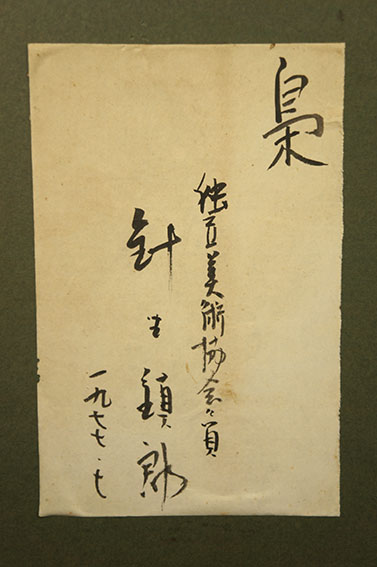 梟
独立美術協会々員
針生鎮郎
一九七七・七